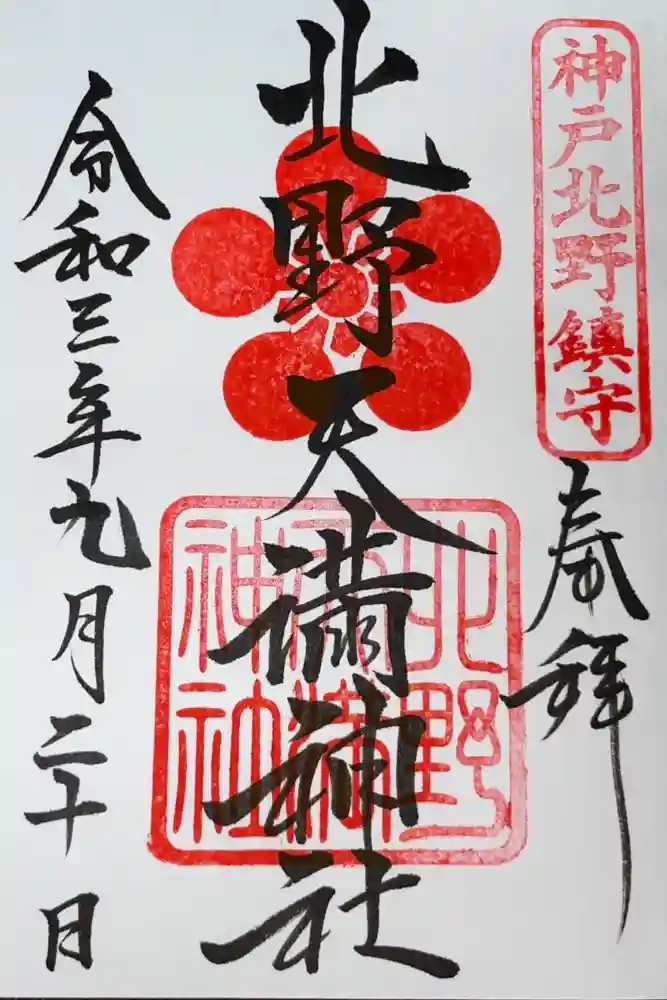 神戸北野鎮守
奉拝
北野天満神社
北野
天満
神社
令和三年九月二十日